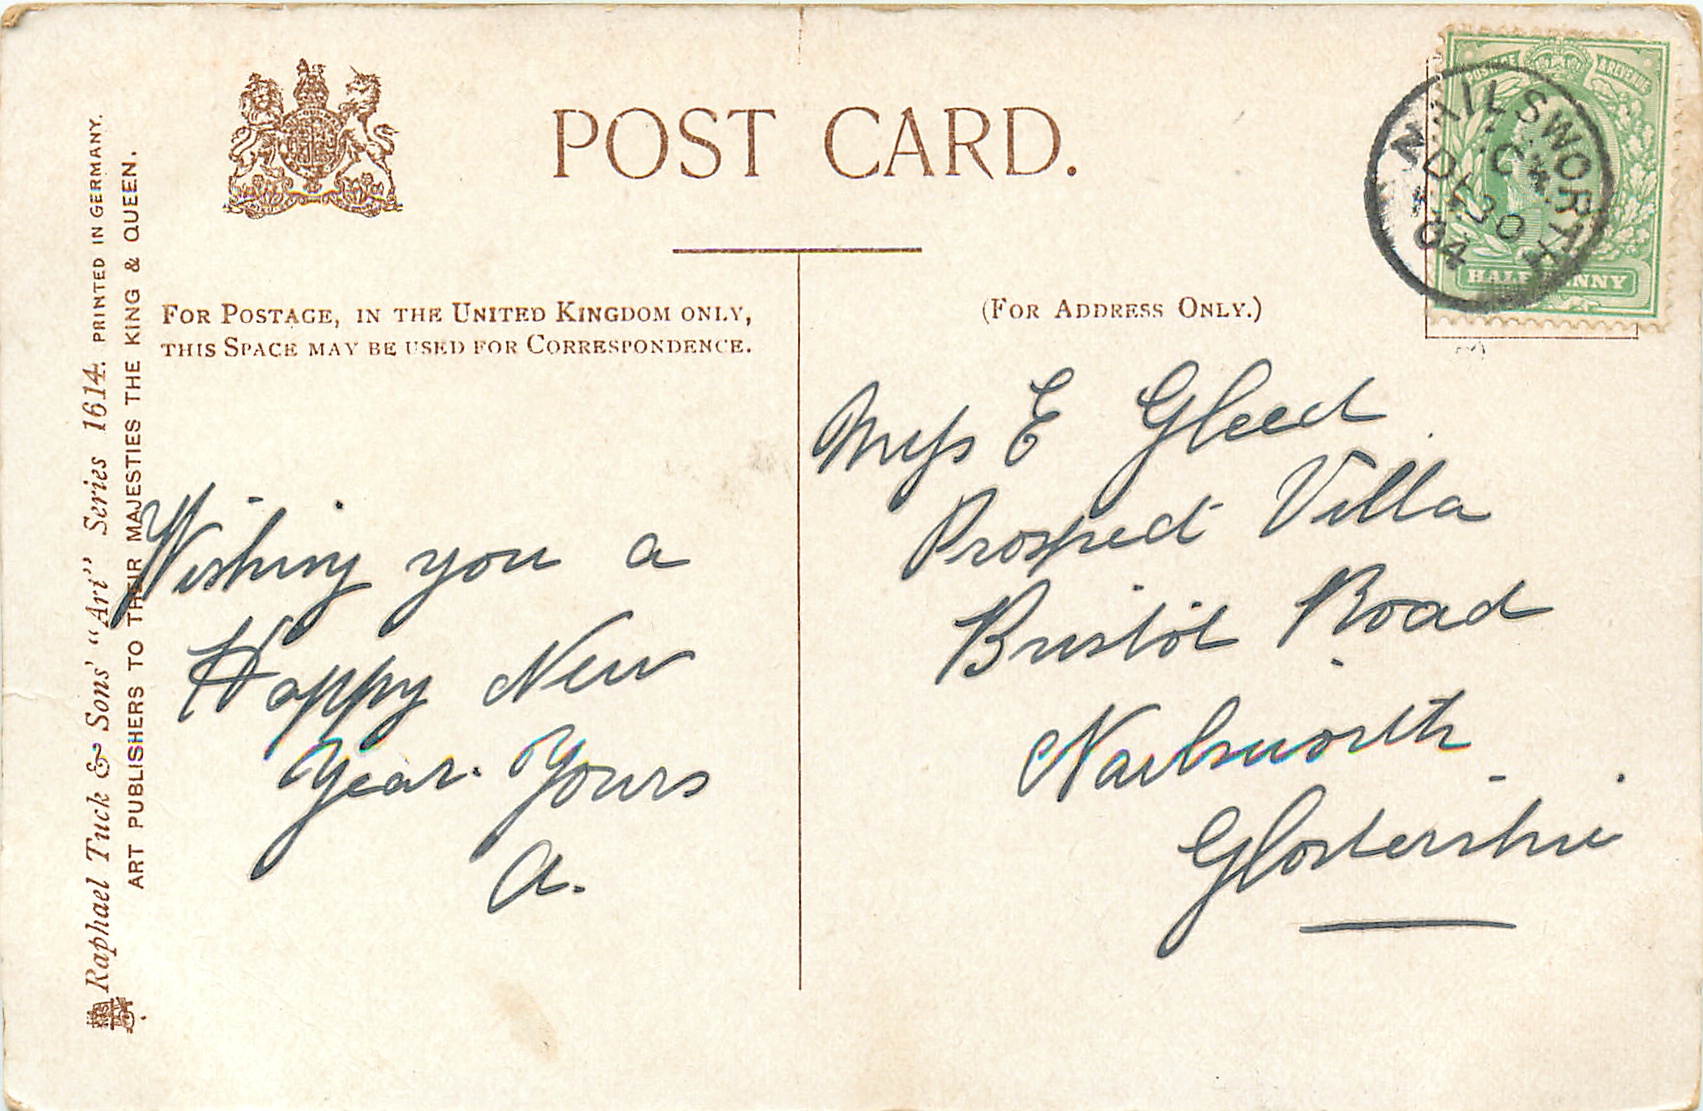 POST CARD.
FOR POSTAGE, IN THE UNITED KINGDOM ONLY,
THIS SPACE MAY BE USED FOR CORRESPONDENCE.
(FOR ADDRESS ONLY.)
Raphael Tuck & Sons' "Art" Series 1614. PRINTED IN GERMANY.
ART PUBLISHERS TO THEIR MAJESTIES THE KING & QUEEN.
Wishing you a
Happy New
Year. Yours
A.
Miss E Gleed
Prospect Villa
Bristol Road
Nailsworth
Glostershire
POSTAGE & REVENUE
HALFPENNY
NAILSWORTH
DE 30
04